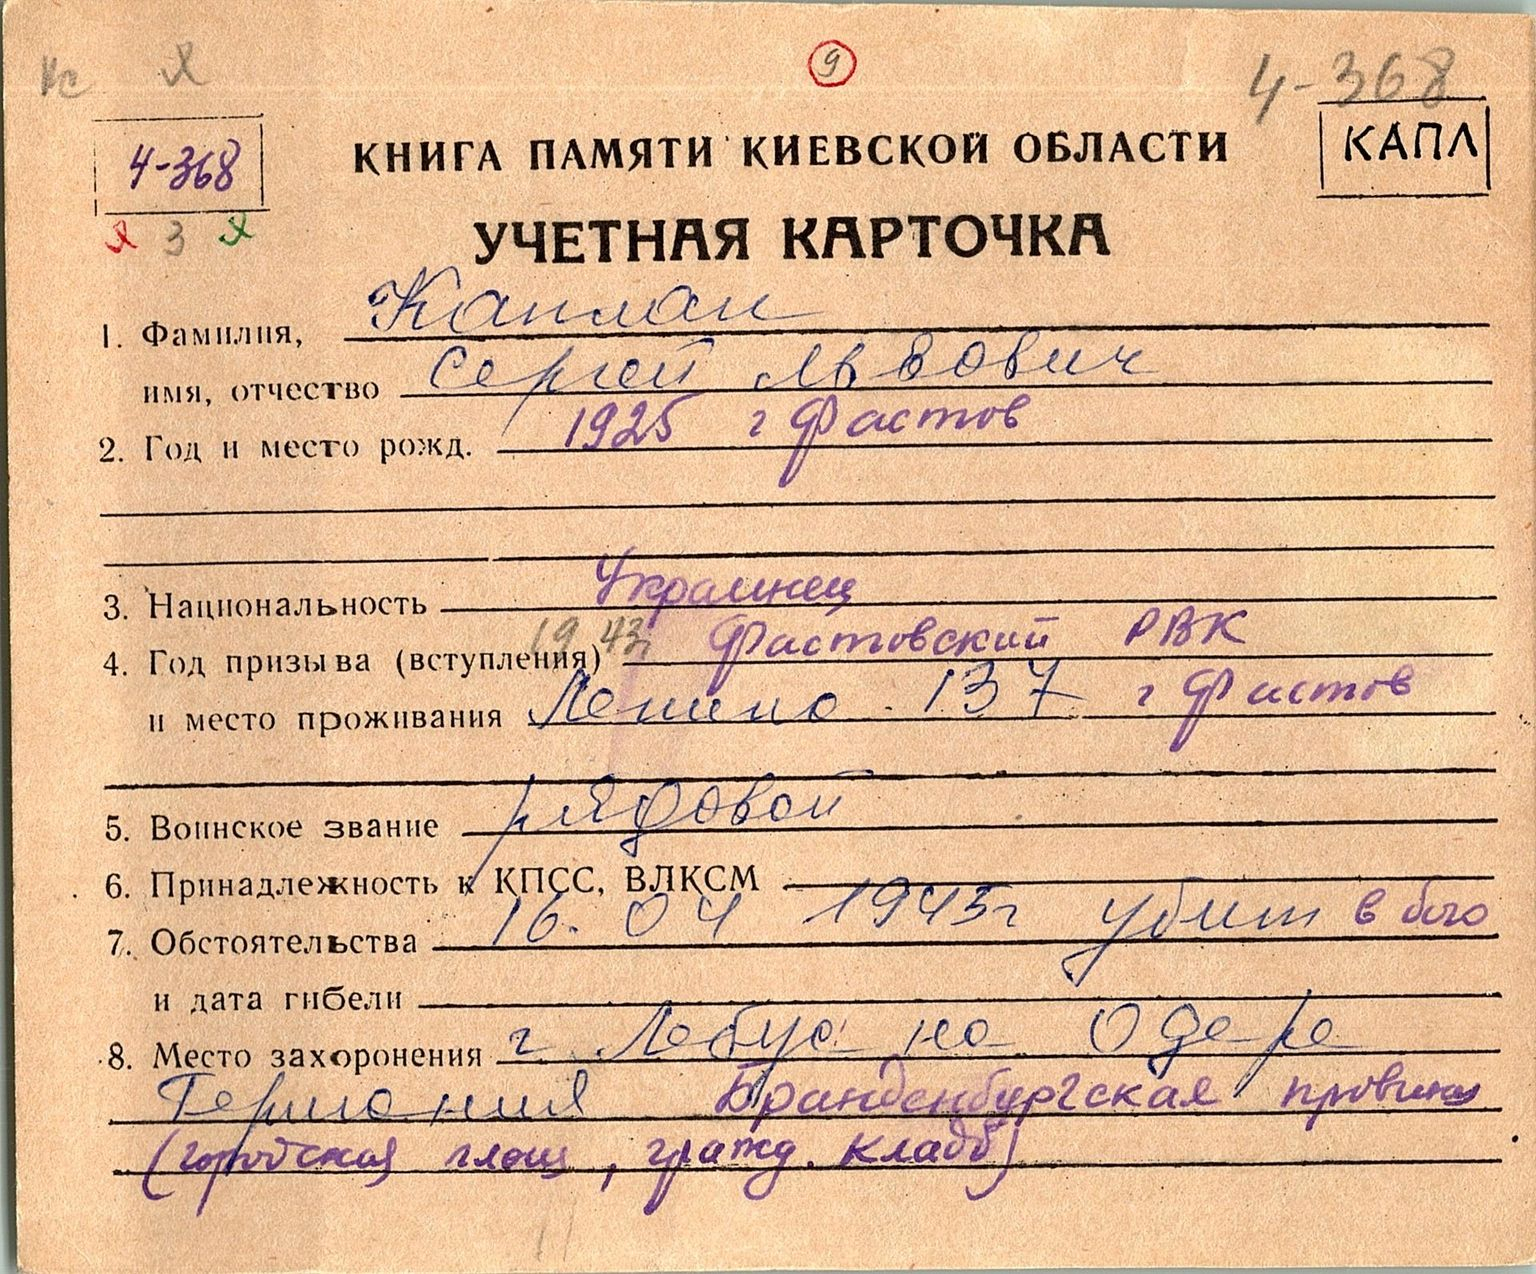 9
4-368
4-368
КАПЛ
КНИГА ПАМЯТИ КИЕВСКОЙ ОБЛАСТИ
3
УЧЕТНАЯ КАРТОЧКА
1. Фамилия, Каплан
имя, отчество Сергей Львович
2. Год и место рожд. 1925 г Фастов
3. Национальность Украинец
4. Год призыва (вступления) 1943г Фастовский РВК
и место проживания Ленина 137 г Фастов
5. Воинское звание рядовой
6. Принадлежность к КПСС, ВЛКСМ
7. Обстоятельства 16. 04 1945г убит в бою
и дата гибели
8. Место захоронения г Лебус на Одере
Германия Бранденбургская провинц
(городская площ, гражд. кладб)